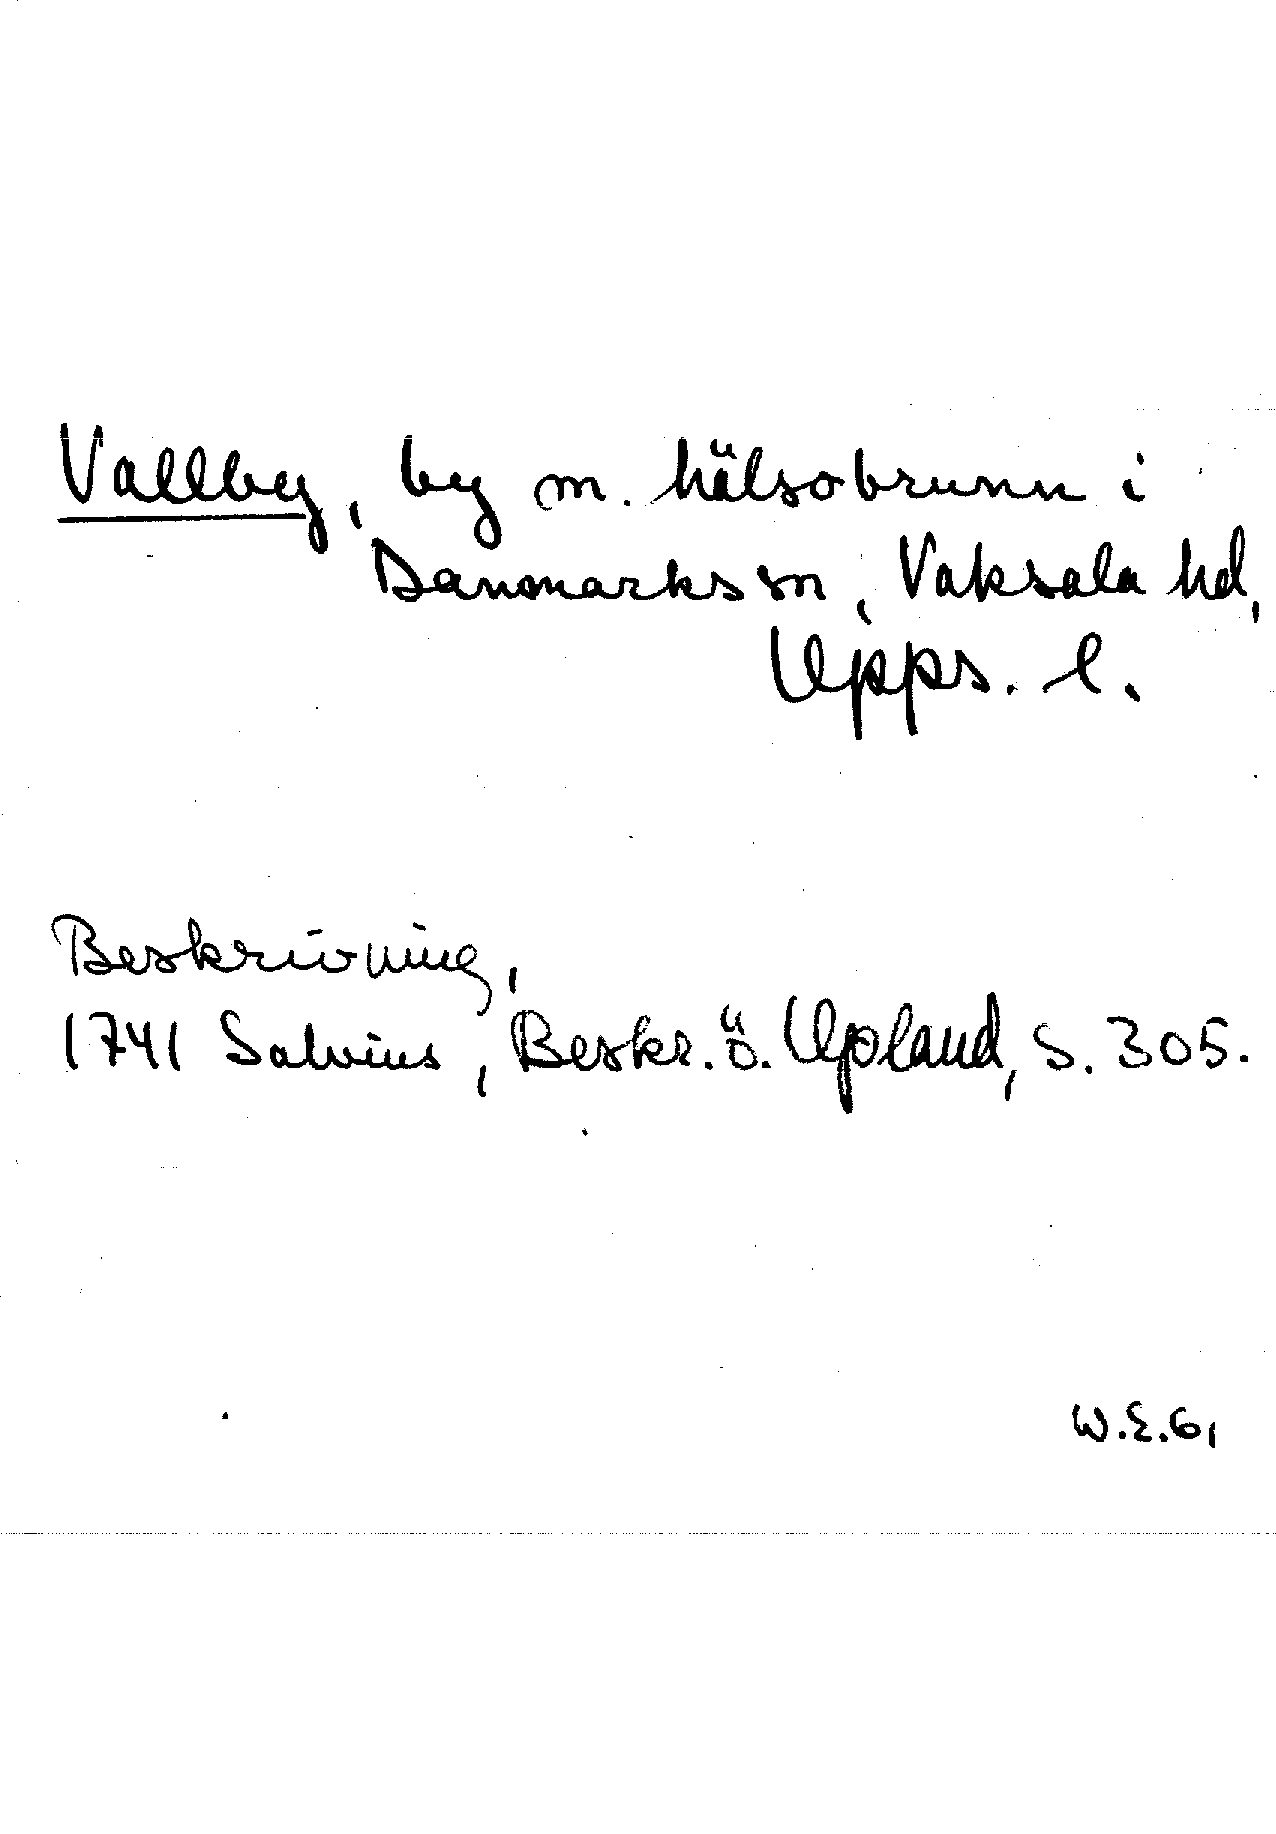 Vallby, by m. hälsobrunn i
Danmarks sn, Vaksala hd,
Upps. l.
Beskrivning,
1741 Salvius, Beskr. ö. Upland, s. 305.
W.E.G,